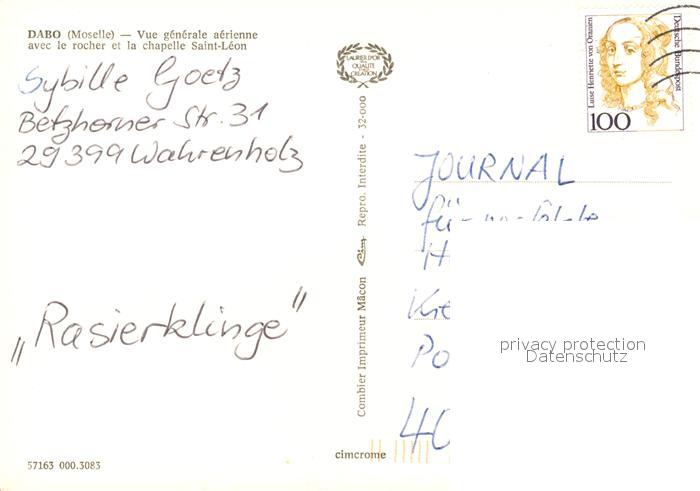 DABO (Moselle) — Vue générale aérienne
avec le rocher et la chapelle Saint-Léon
Sybille Goetz
Betzhorner Str. 31
29399 Wahrenholz
„Rasierklinge"
57163 000.3083
LAURIER D'OR
DE LA
QUALITÉ
CRÉATION
Combier Imprimeur Mâcon Cim Repro. Interdite - 32-000
cimcrome
Luise Henriette von Oranien
Deutsche Bundespost
100
JOURNAL
für
H
Kre
Po
40
privacy protection
Datenschutz